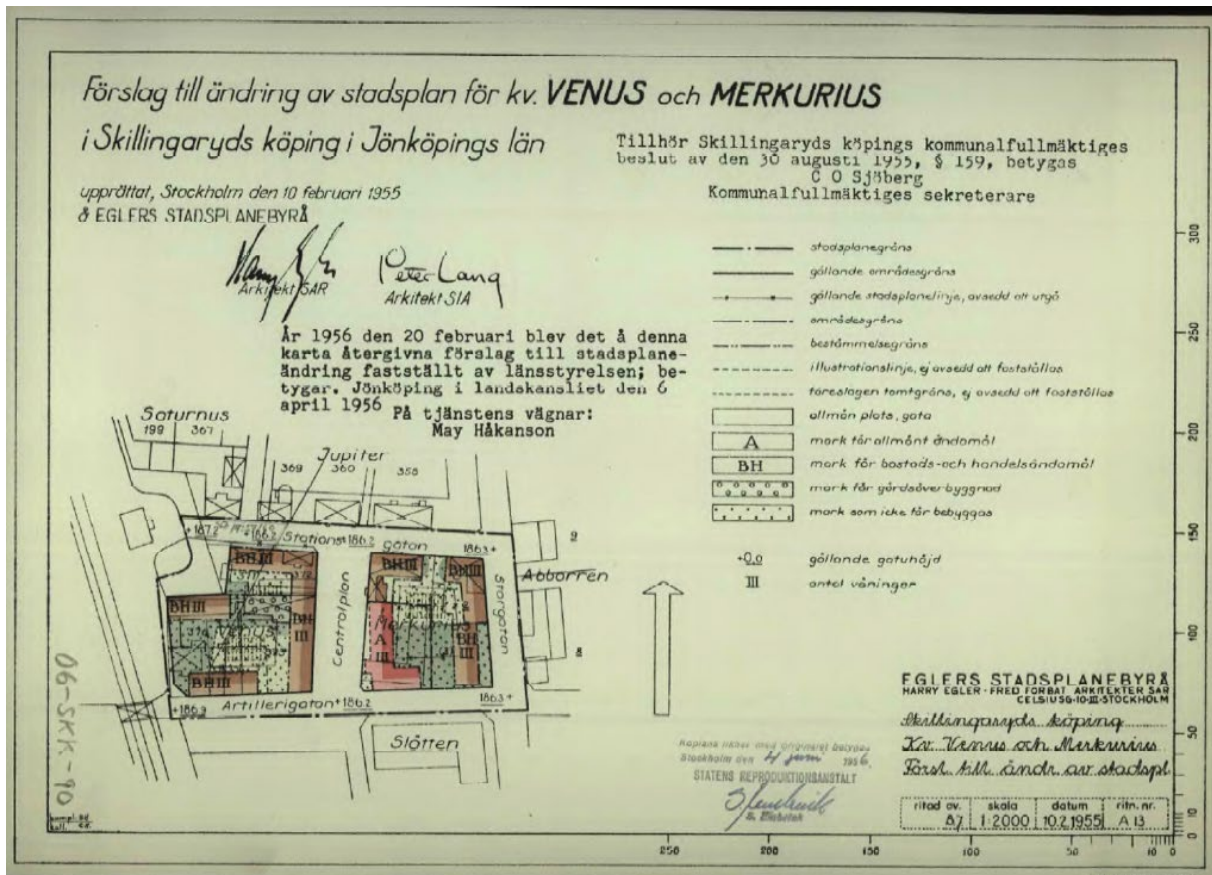 Förslag till ändring av stadsplan för kv. VENUS och MERKURIUS
i Skillingaryds köping i Jönköpings län
upprättat, Stockholm den 10 februari 1955
å EGLERS STADSPLANEBYRÅ
Arkitekt SAR
Peter Lang
Arkitekt SIA
Tillhör Skillingaryds köpings kommunalfullmäktiges
beslut av den 30 augusti 1955, § 159, betygas
C O Sjöberg
Kommunalfullmäktiges sekreterare
År 1956 den 20 februari blev det å denna
karta återgivna förslag till stadsplane-
ändring fastställt av länsstyrelsen; be-
tygar. Jönköping i landskansliet den 6
april 1956
På tjänstens vägnar:
May Håkanson
stadsplanegräns
gällande områdesgräns
gällande stadsplanelinje, avsedd att utgå
områdesgräns
bestämmelsegräns
illustrationslinje, ej avsedd att fastställas
föreslagen tomtgräns, ej avsedd att fastställas
allmän plats, gata
A mark för allmänt ändamål
BH mark för bostads- och handelsändamål
mark för gårdsöverbyggnad
mark som icke får bebyggas
+0.0 gällande gatuhöjd
III antal våningar
Saturnus
199 367
Jupiter
369 360 358
+187.2 +186.2 Stations +186.2 gatan 186.3 +
BH III
BH III
BH III
BH III
BH III
BH III
BH III
A III
Venus
Merkurius
Centralplan
Storgatan
Abborren
9
8
+186.9 Artillerigatan +186.2 186.3 +
Slätten
06-SKK-90
Kopians likhet med originalet betygas
Stockholm den 4 juni 1956
STATENS REPRODUKTIONSANSTALT
EGLERS STADSPLANEBYRÅ
HARRY EGLER - FRED FORBAT ARKITEKTER SAR
CELSIUSG-10-III-STOCKHOLM
Skillingaryds köping
Kv. Venus och Merkurius
Försl. till ändr. av stadspl.
ritad av. skala datum ritn. nr.
1:2000 10.2.1955 A 13
300
250
200
150
100
50
10
0
250 200 150 100 50 10 0